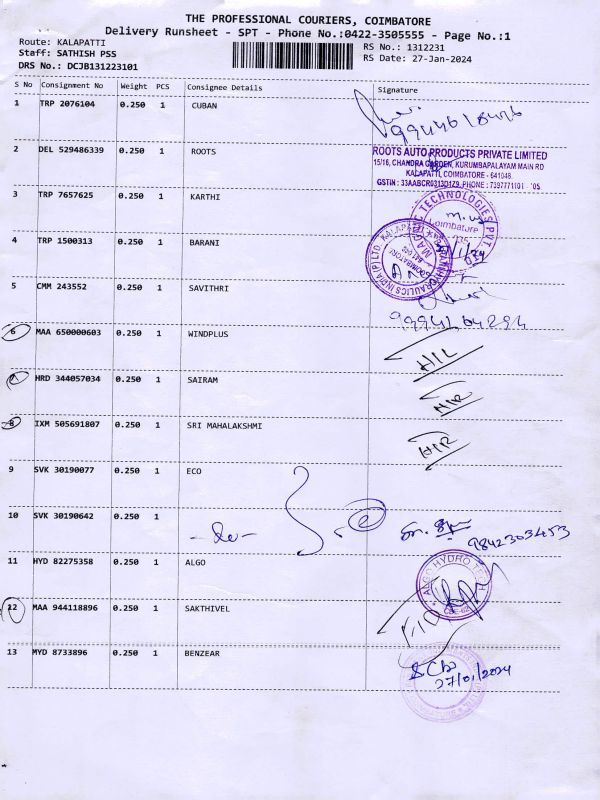 THE PROFESSIONAL COURIERS, COIMBATORE
Delivery Runsheet - SPT - Phone No.:0422-3505555 - Page No.:1
Route: KALAPATTI
RS No.: 1312231
Staff: SATHISH PSS
RS Date: 27-Jan-2024
DRS No.: DCJB131223101
S No Consignment No Weight PCS Consignee Details Signature
1 TRP 2076104 0.250 1 CUBAN
2 DEL 529486339 0.250 1 ROOTS
ROOTS AUTO PRODUCTS PRIVATE LIMITED
15/16, CHANDRA GARDEN, KURUMBAPALAYAM MAIN RD
KALAPATTI, COIMBATORE - 641048.
3 TRP 7657625 0.250 1 KARTHI
TECHNOLOGIES PVT.
Coimbatore
4 TRP 1500313 0.250 1 BARANI
5 CMM 243552 0.250 1 SAVITHRI
6 MAA 650000603 0.250 1 WINDPLUS
7 HRD 344057034 0.250 1 SAIRAM
8 IXM 505691807 0.250 1 SRI MAHALAKSHMI
9 SVK 30190077 0.250 1 ECO
10 SVK 30190642 0.250 1
-do-
11 HYD 82275358 0.250 1 ALGO
ALGO HYDRO TECH
12 MAA 944118896 0.250 1 SAKTHIVEL
13 MYD 8733896 0.250 1 BENZEAR
27/01/2024